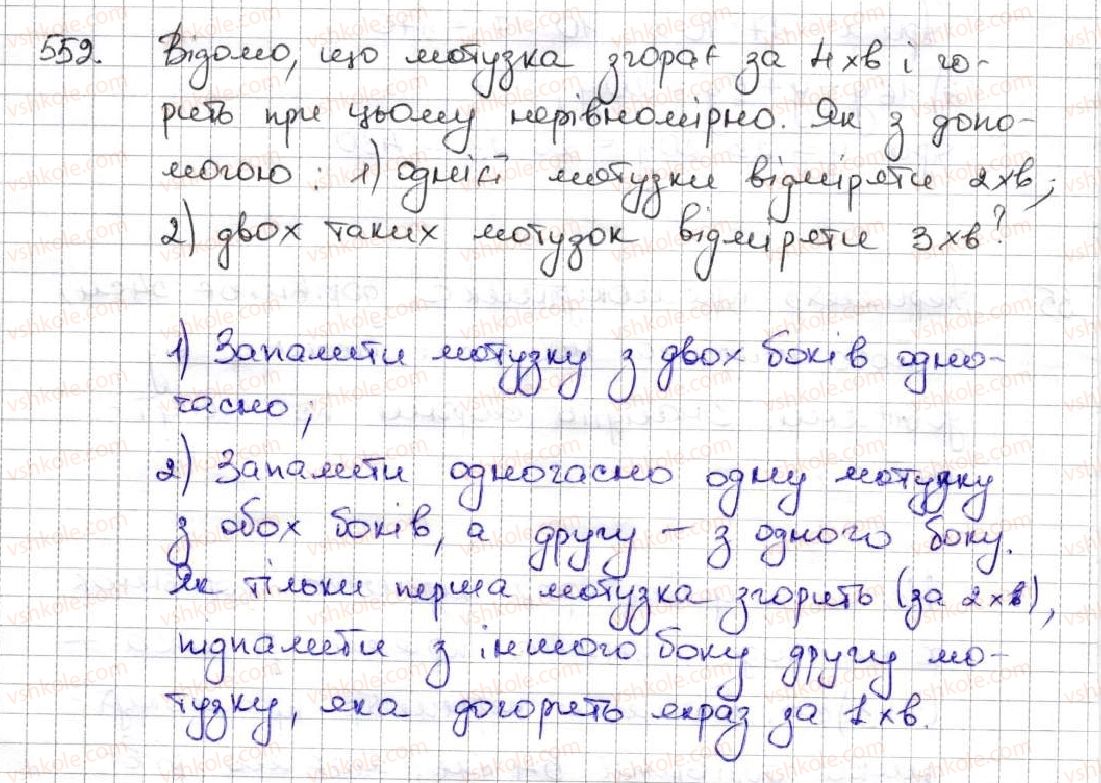 552. Відомо, що мотузка згорає за 4 хв і го-
рить при цьому нерівномірно. Як з допо-
могою: 1) однієї мотузки відміряти 2 хв;
2) двох таких мотузок відміряти 3 хв?
1) Запалити мотузку з двох боків одно-
часно;
2) Запалити одночасно одну мотузку
з обох боків, а другу – з одного боку.
Як тільки перша мотузка згорить (за 2 хв),
підпалити з іншого боку другу мо-
тузку, яка догорить якраз за 1 хв.